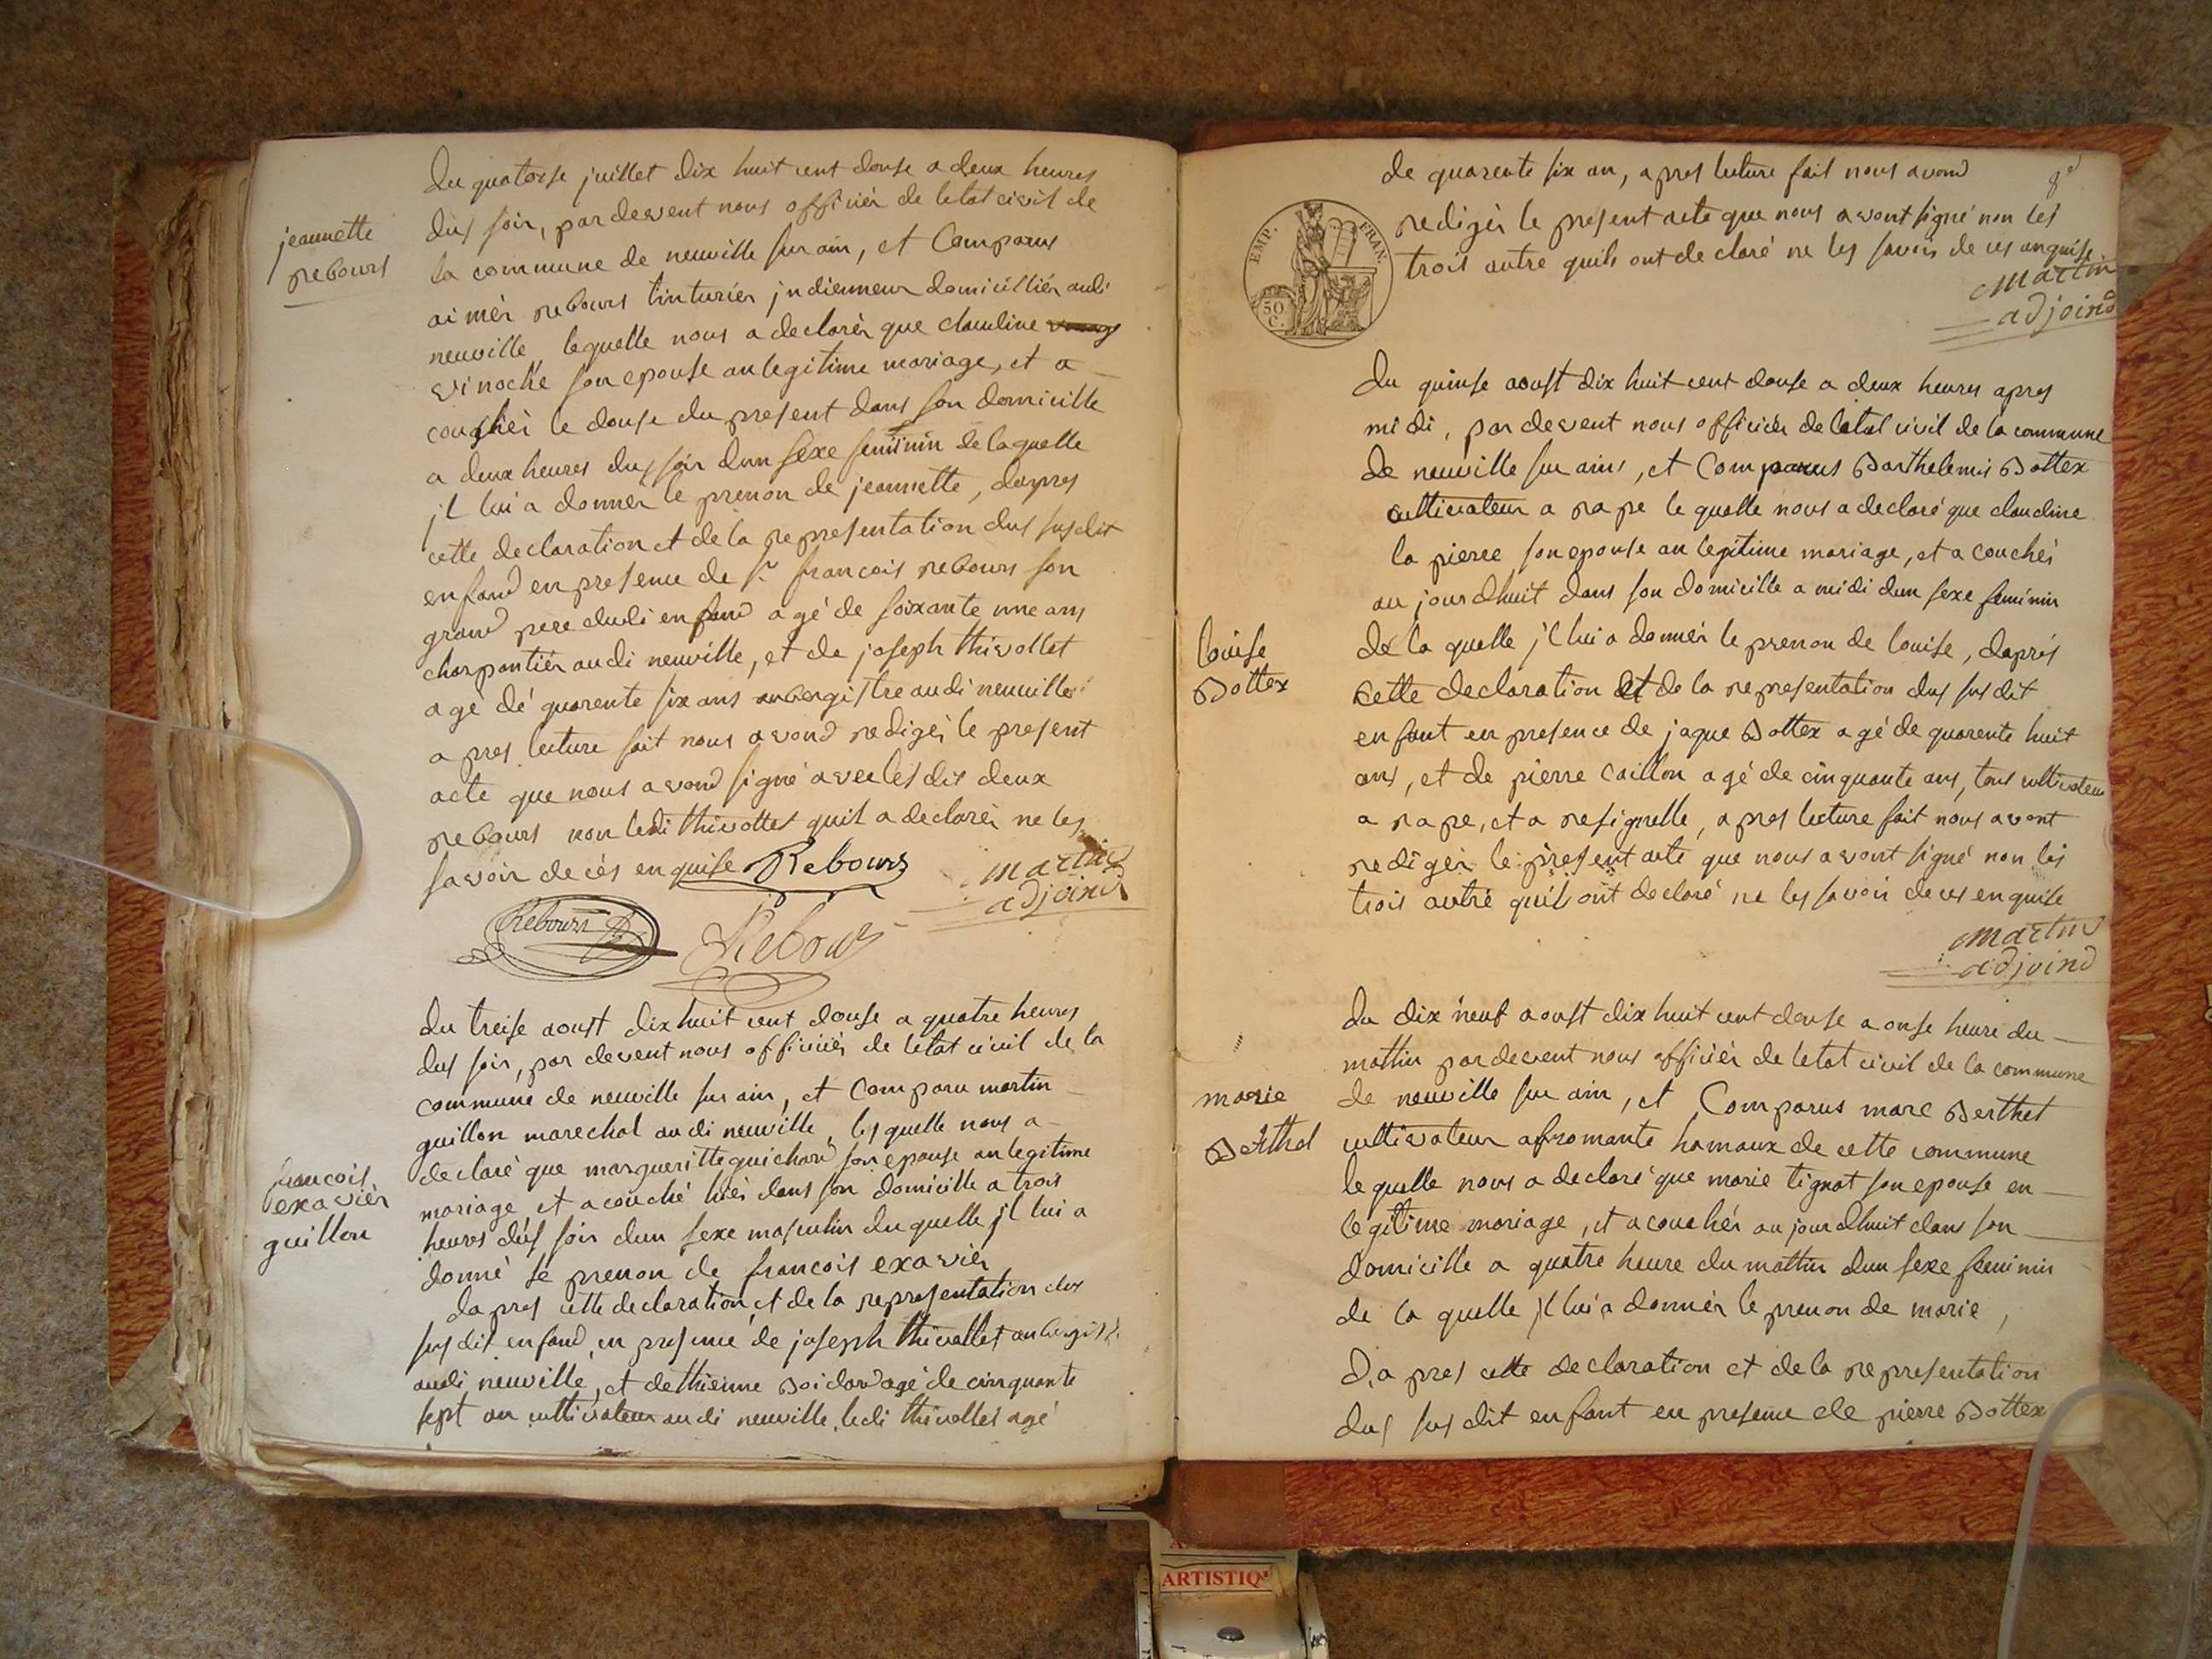 jeannette
rebours
du quatorse juillet dix huit cent douse a deux heures
dus soir, par devent nous officier de letat civil de
la commune de neuville sur ain, et Comparus
aimér rebours tinturiér jndienneur domicilliér audi
neuville, lequelle nous a declarér que claudine
vinoché son epouse an legitime mariage, et a
couchéi le douse du present dans son domicille
a deux heures dus soir dun sexe feminin de laquelle
jl lui a donnér le prenon de jeannette, dapres
cette declaration et de la representation dus susdit
enfand en presence de Sr francois rebours son
grand pere dudi enfand agé de soixante une ans
charpantiér audi neuville, et de joseph thivollet
agé dé quarente six ans aubergistre audi neuville
apres lecture fait nous avond redigéi le present
acte que nous avond signé avec les dis deux
rebours non ledi thivollet quil a declaréi ne les
savoir de cés enquise Rebours martin
adjoind
Rebours Rebours
francois
exaviér
guillon
du treise aoust dix huit cent douse a quatre heures
dus soir, par devent nous officiiér de letat civil de la
commune de neuville sur ain, et Comparu martin
guillon marechal audi neuville, lesquelle nous a
declaré que margueritte guichard son epouse an legitime
mariage et a couché hiér dans son domicille a trois
heures dus soir dun sexe masculin du quelle jl lui a
donné le prenon de francois exaviér
da pres cette declaration et de la representation dus
susdit enfand en presence de joseph thivollet
audi neuville, et dethienne Boidard agé de cinquante
sept an cultivateur audi neuville, ledi thivollet agé
8e
de quarente six an, apres lecture fait nous avond
redigér le present acte que nous avont signé non les
trois autre quils ont declaré ne les savoir de ces anquise
martin
adjoind
EMP. FRAN.
50
C.
du quinse aoust dix huit cent douse a deux heures apres
midi, par devent nous officiér de letat civil de la commune
de neuville sur ains, et Comparus Barthelemis Bottex
cultivateur a rape le quelle nous a declaré que claudine
la pierre son epouse an legitime mariage, et a couchéi
au jourdhuit dans son domicille a midi dun sexe feminin
louise
Bottex
de la quelle jl lui a donnér le prenon de louise, daprés
cette declaration et de la representation dus susdit
enfant en presence de jaque Bottex agé de quarente huit
ans, et de pierre caillon agé de cinquante ans, tous cultivateur
a rape, et a resignelle, apres lecture fait nous avont
redigér le present acte que nous avont signé non les
trois autre quils ont declaré ne les savoir de ces enquise
martin
adjoind
du dix neuf aoust dix huit cent douse a onse heure du
mattin par devent nous officiér de letat civil de la commune
marie
Berthet
de neuville sur ain, et Comparus marc Berthet
cultivateur a fromante hamaux de cette commune
le quelle nous a declaré que marie tignat son epouse en
legitime mariage, et a couchér au jourdhuit dans son
domicille a quatre heure du mattin dun sexe feminin
de la quelle jl lui a donnér le prenon de marie,
Da pres cette declaration et de la representation
dus sus dit enfant en presence de pierre Bottex
ARTISTIQ